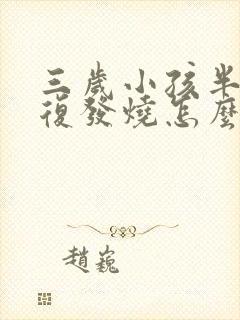 三歲小孩半
復發燒怎麼
趙巍